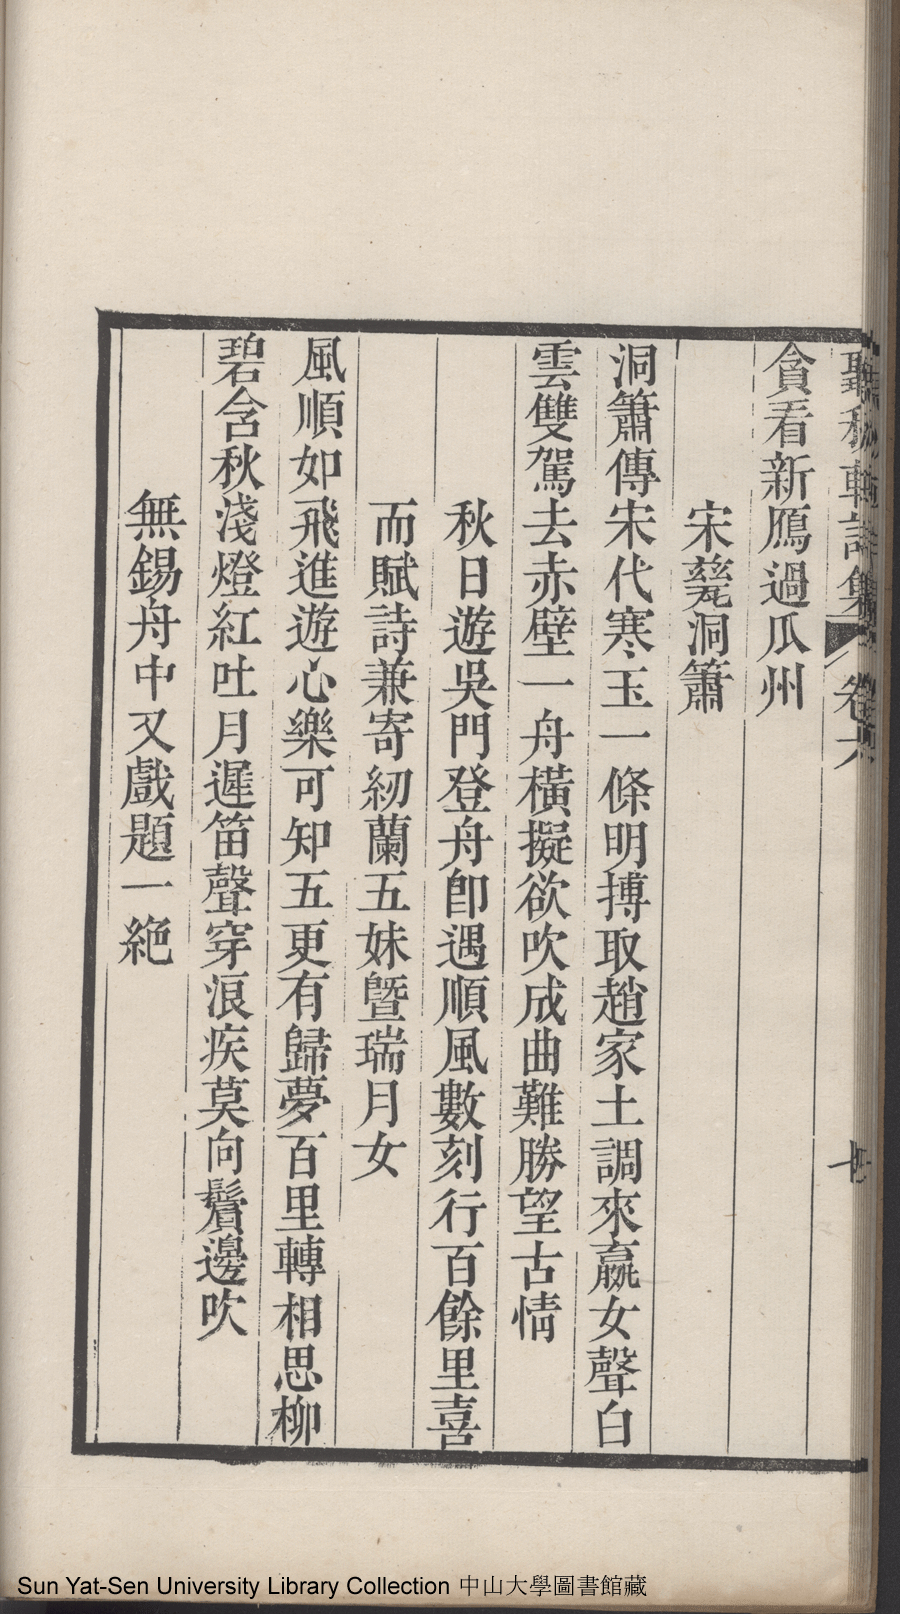 聽秋軒詩集 卷六
貪看新鴈過瓜州
宋甆洞簫
洞簫傳宋代寒玉一條明摶取趙家土調來嬴女聲白
雲雙駕去赤壁一舟橫擬欲吹成曲難勝望古情
秋日遊吳門登舟卽遇順風數刻行百餘里喜
而賦詩兼寄紉蘭五妹曁瑞月女
風順如飛進遊心樂可知五更有歸夢百里轉相思柳
碧含秋淺燈紅吐月遲笛聲穿浪疾莫向鬢邊吹
無錫舟中又戲題一絶
Sun Yat-Sen University Library Collection 中山大學圖書館藏